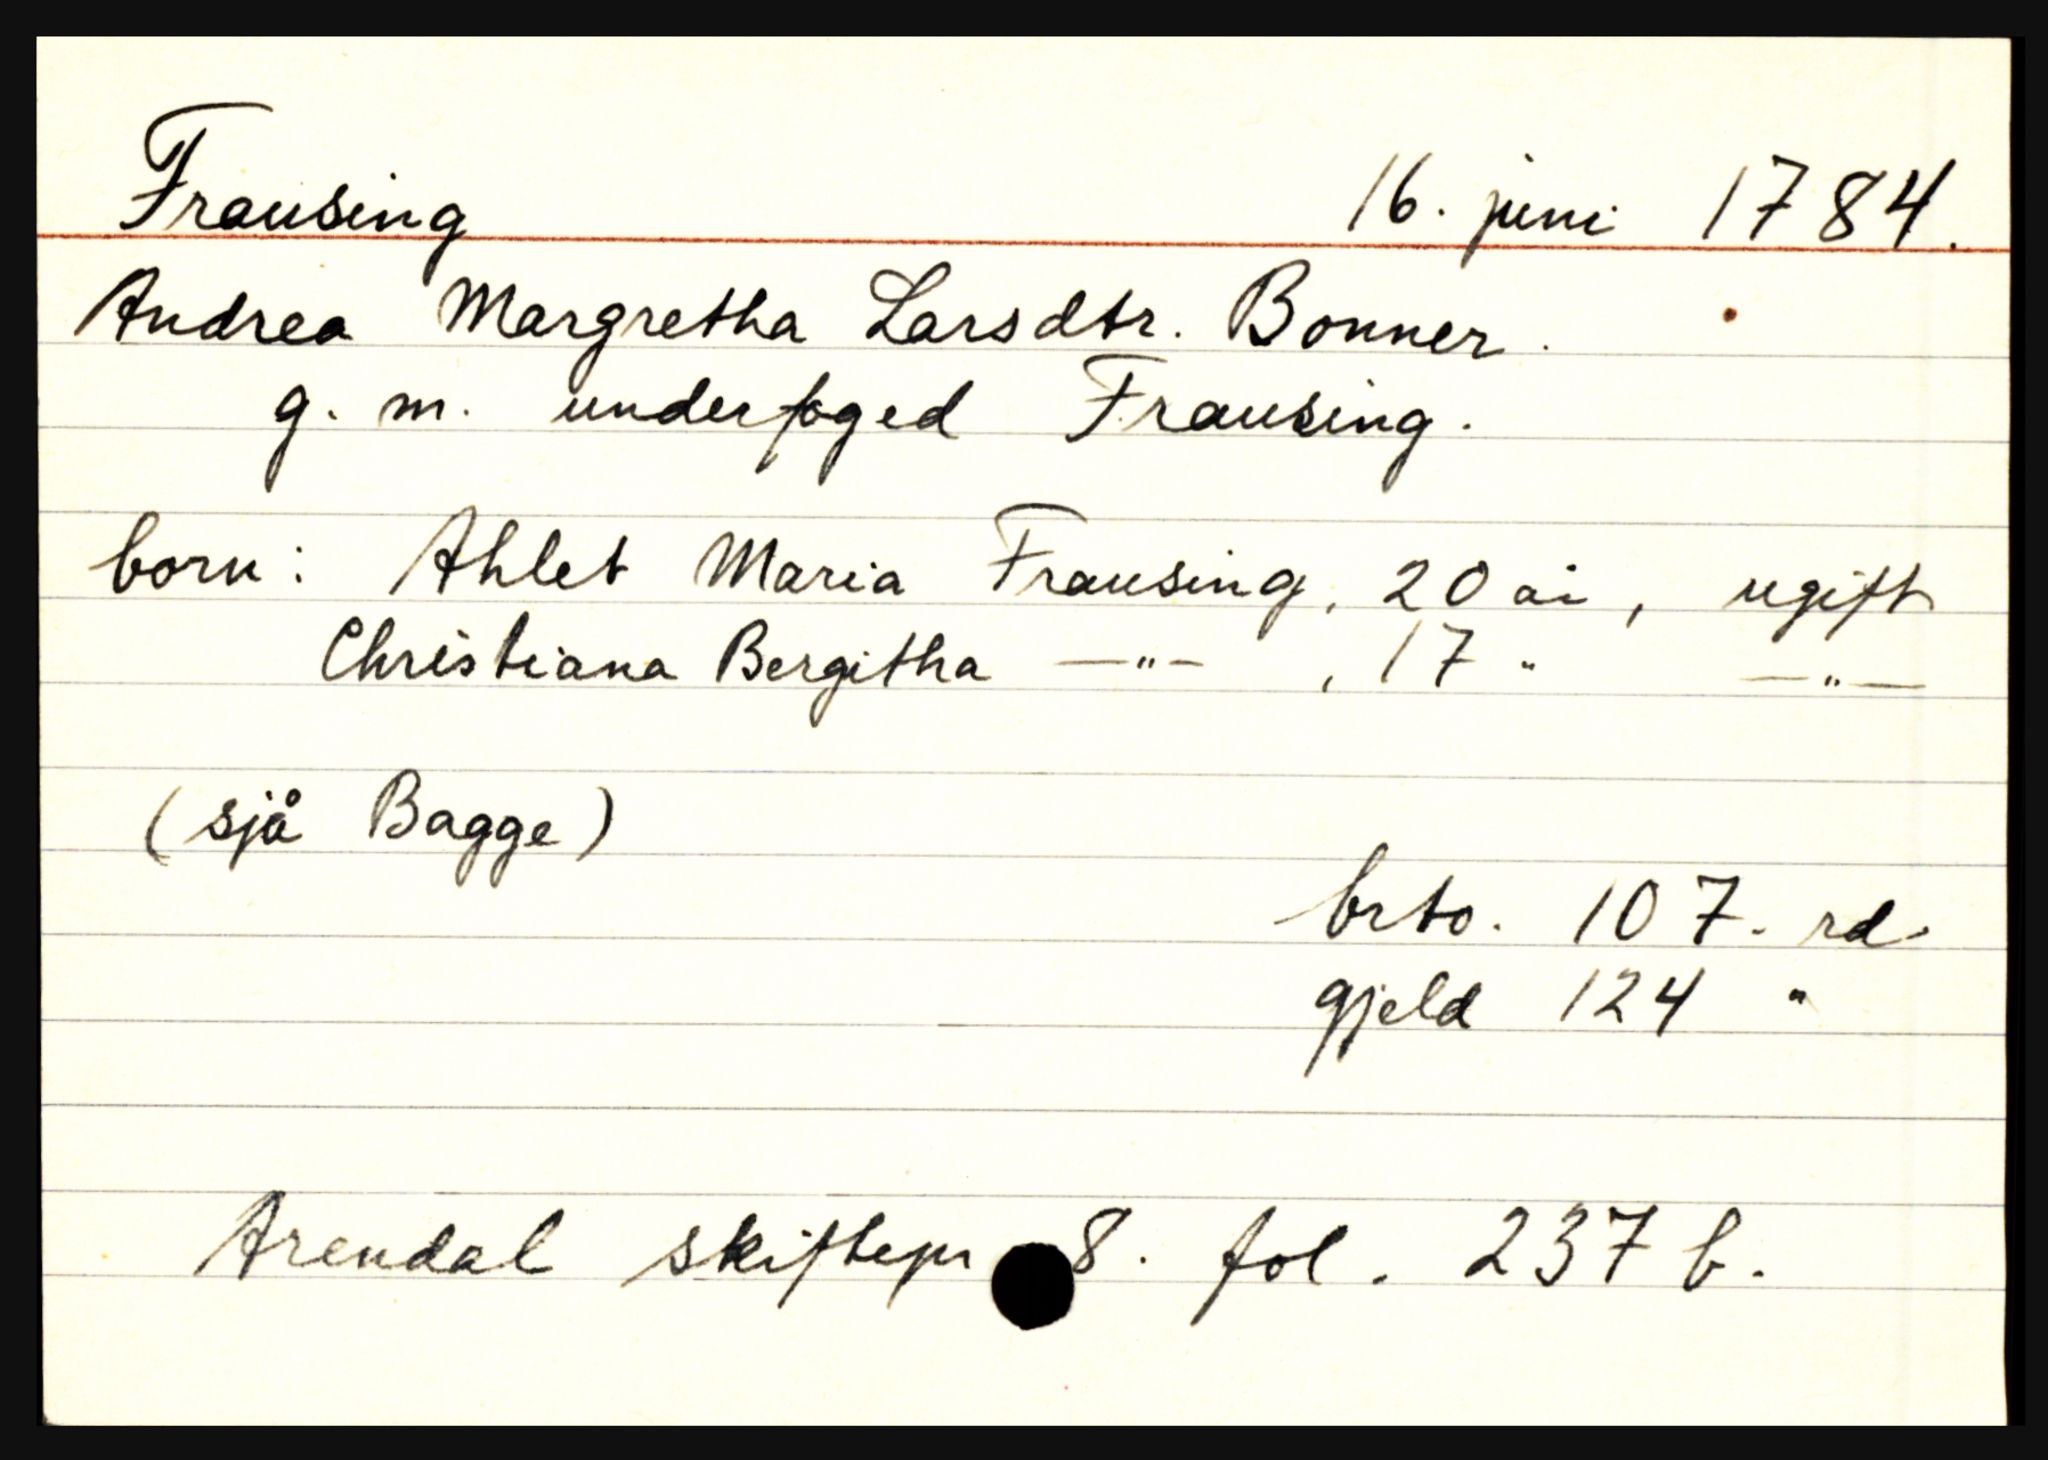 Frausing 16. juni 1784.
Andrea Margretha Larsdtr. Bonner.
g. m. underfoged Frausing.
born: Ahlet Maria Frausing, 20 år, ugift
Christiana Bergitha —"— , 17 " —"—
(sjå Bagge)
brto. 107. rd.
gjeld 124 "
Arendal skiftepr 8. fol. 237 b.